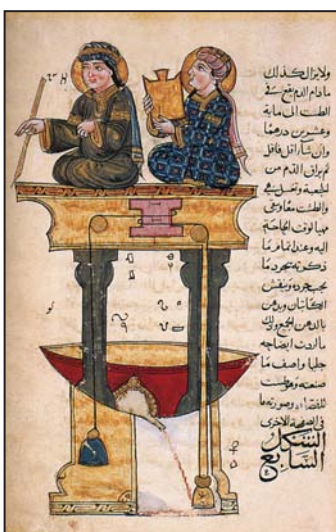 ولايزال كذلك
مادام الدم يقع في
الطست الى ماية
وعشرين درهما
وان شا اقل فاقل
ثم يراق الدم من
وتغسل هي
والطست معا وتبقى
مهيا لوقت الحاجة
اليه وعند اتمام ما
ذكرته يجرد ما
يجب جرده وينقش
الكاتبان ويدهن
بالدهن
ما اردت ايضاحه
جليا واصف ما
صنعته وهو طست
وصورته ما
في الصفحة الاخرى
الشكل
السابع